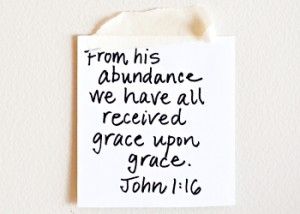 From his
abundance
we have all
received
grace upon
grace.
John 1:16